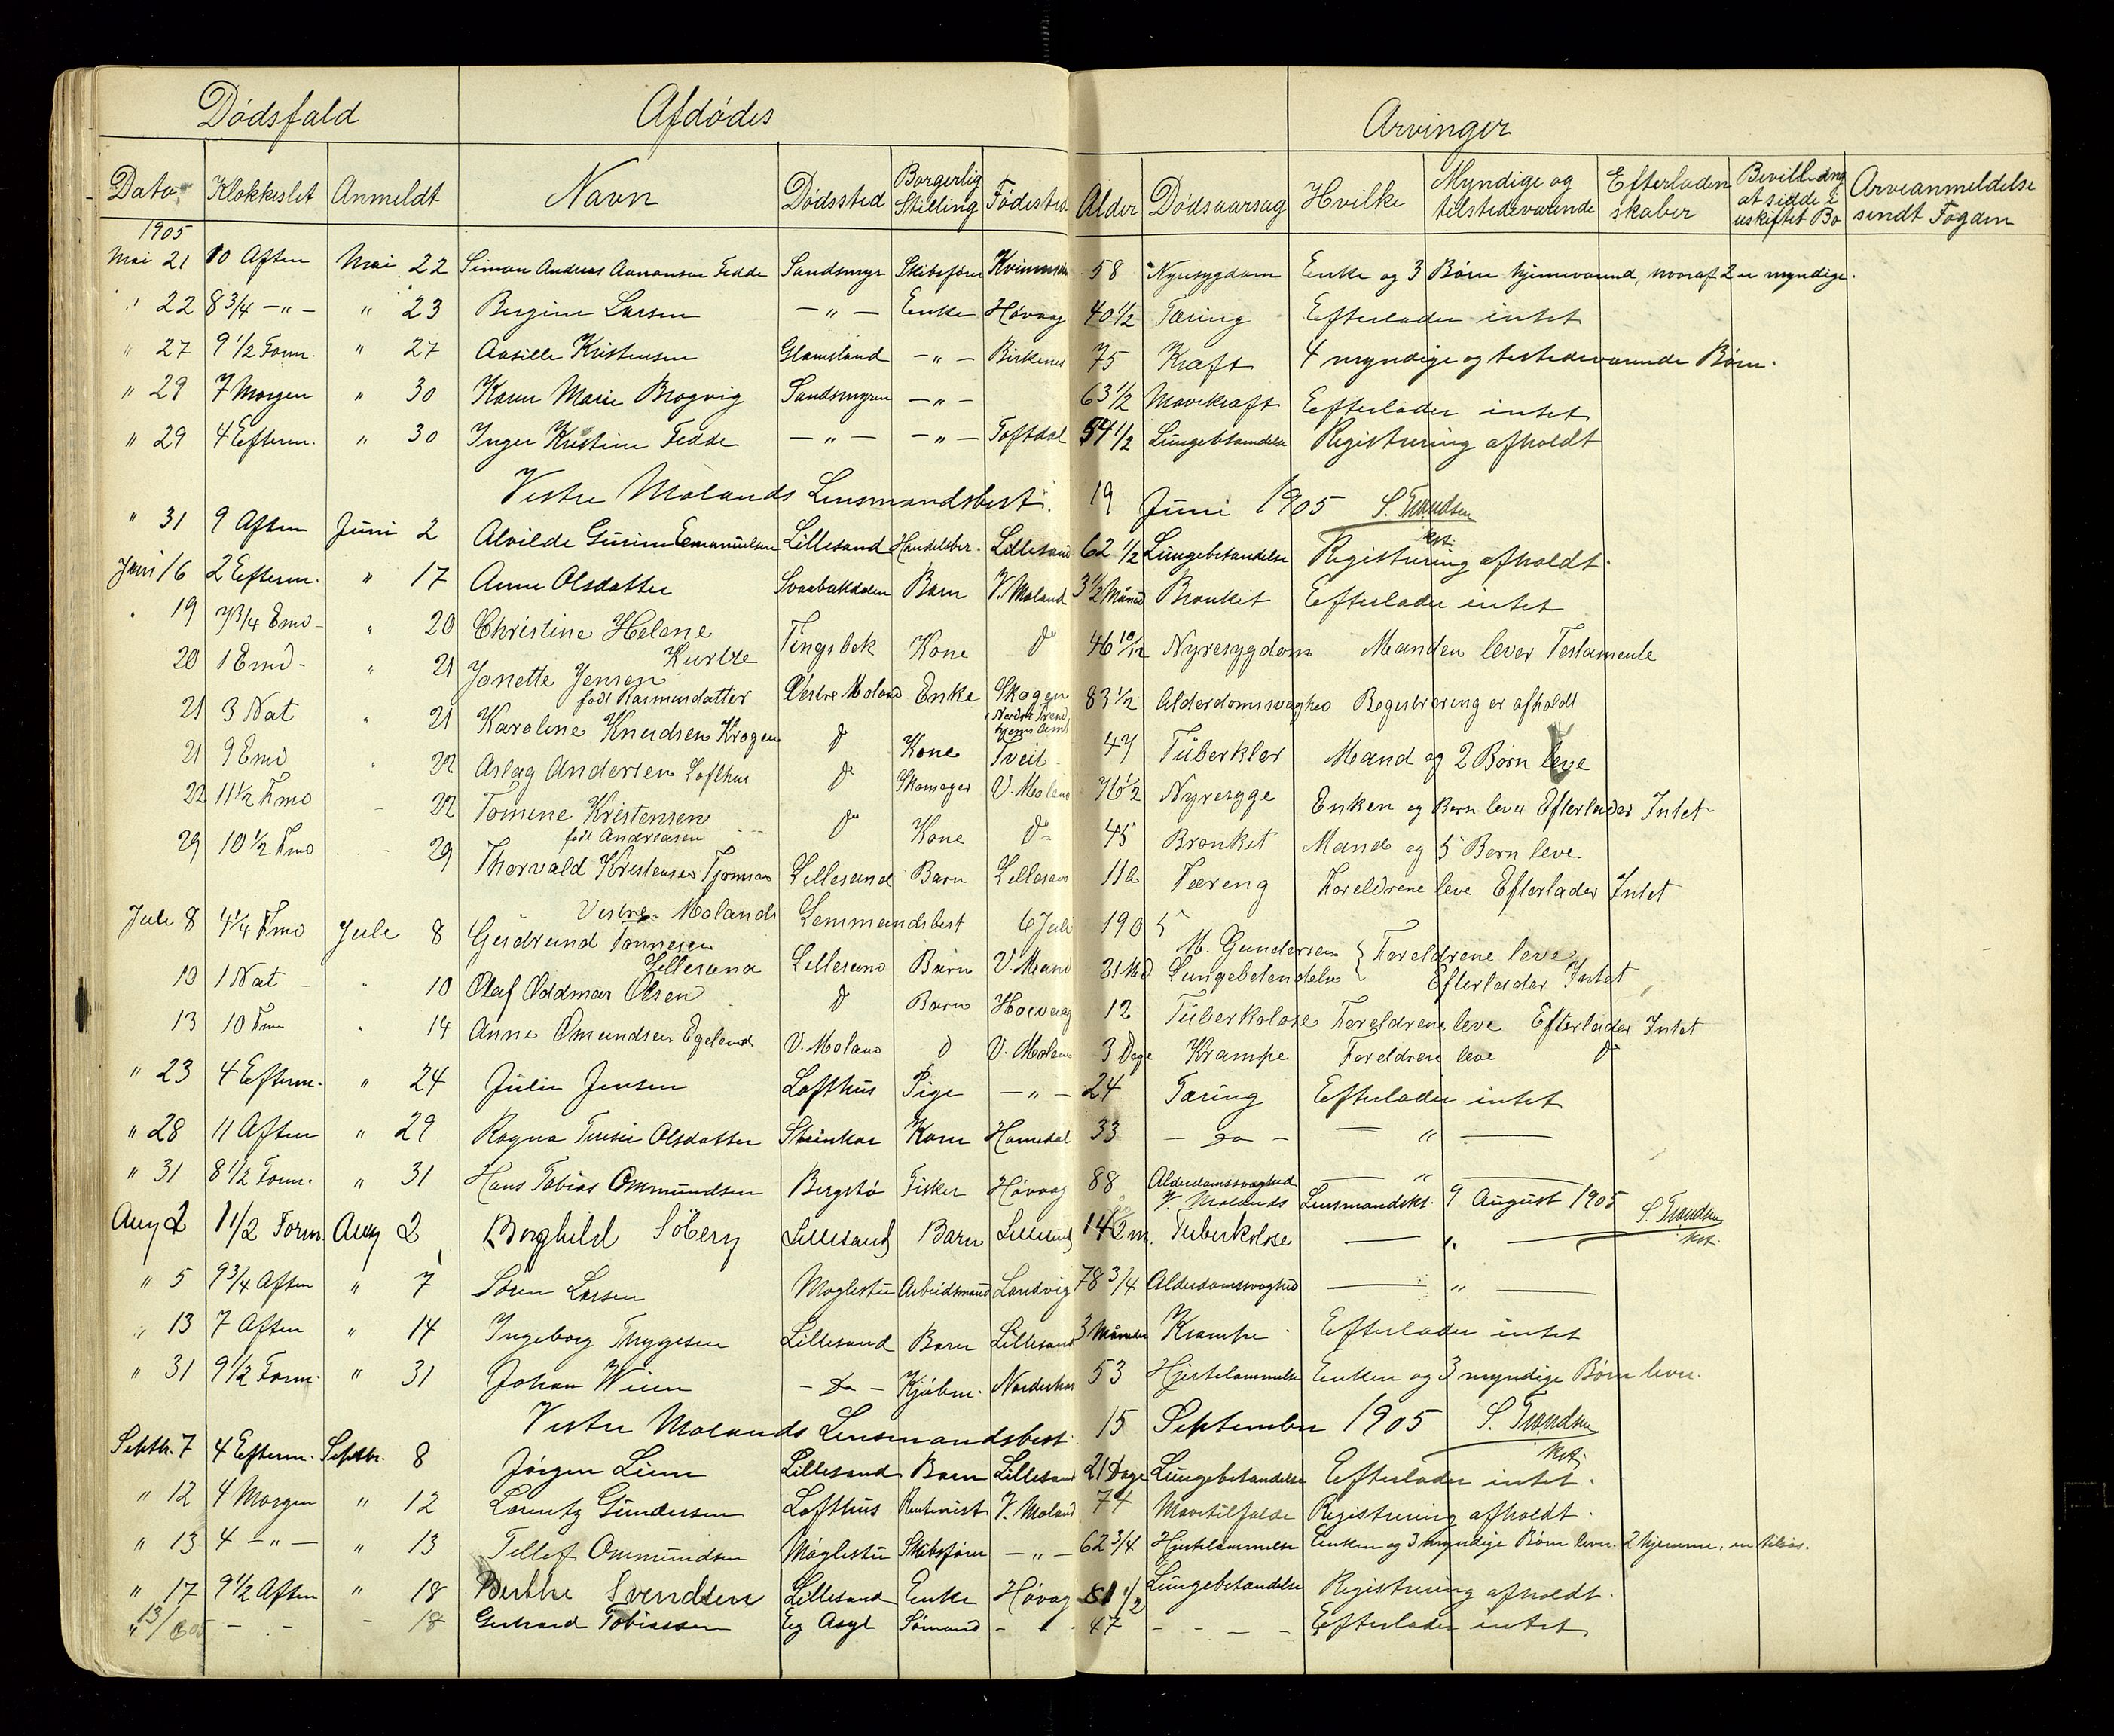 Dødsfald Afdødes Arvinger
Dato Klokkeslet Anmeldt Navn Dødssted Borgerlig Stilling Fødested Alder Dødsaarsag Hvilke Myndige og tilstedeværende Efterladenskaber Bevilling at sidde i uskiftet Bo Arveanmeldelse sendt Fogden
1905
Mai 21 10 Aften Mai 22 Simon Andreas Aanonsen Fedde Sandsmyr Skibsfører 58 Nyresygdom Enke og 3 Børn hjemværend, hvoraf 2 er myndige.
" 22 8 3/4 - " - " 23 Bergine Larsen - " - Enke Høvaag 40 1/2 Tæring Efterlader intet
" 27 9 1/2 Form. " 27 Aasille Kristensen Glamsland - " - Birkenes 75 Kræft 4 myndige og testedeværende Børn.
" 29 7 Morgen " 30 Karen Marie Brogvig Sandsmyren - " - 63 1/2 Mavekræft Efterlader intet
" 29 4 Efterm. " 30 Inger Kristine Fedde - " - - " - Toftdal 54 1/2 Lungebetændelse Registrering afholdt
Vestre Molands Lensmandsbest. 19 Juni 1905 S. Trondsen kst.
" 31 9 Aften Juni 2 Alvilde Gurine Emanuelsen Lillesand Handelsber. Lillesand 62 1/2 Lungebetændelse Registrering afholdt.
Juni 16 2 Efterm. " 17 Anne Olsdatter Svaabækdalen Barn V. Moland 3 1/2 Maaned Bronkit Efterlader intet
" 19 7 3/4 Emd - " 20 Christine Helene Tingsbek Kone do 46 10/12 Nyresygdom Manden lever Testamente
20 1 Emd - " 21 Janette Jensen født Rasmusdatter Vestre Moland Enke Skogen Nordre Trondhjems Amt 83 1/2 Alderdomssvaghed Registrering er afholdt
21 3 Nat " 21 Karoline Knudsen Krogen do Kone Tveit 47 Tuberkler Mand og 2 Børn leve
21 9 Emd " 22 Aslag Andersen Lofthus do Skomager V. Moland 76 1/2 Nyresyge Enken og Børn lever Efterlader Intet
22 11 1/2 Fmd - 22 Tomine Kristensen født Andreasen do Kone do 45 Bronkit Mand og 5 Børn leve
29 10 1/2 Fmd - 29 Thorvald Kristensen Lillesand Barn Lillesand 11 Tæring Foreldrene leve Efterlader Intet
Vestre Molands Lensmandsbest 6 Juli 1905 M. Gundersen
Juli 8 4 1/4 Fmd Juli 8 Gudrund Tønnesen Lillesand Lillesand Barn V. Moland 21 Md Lungebetendelse Foreldrene leve Efterlader Intet
10 1 Nat - " 10 Olaf Oddmar Olsen do Barn Høvaag 12 Tuberkolose Foreldrene leve Efterlader Intet
13 10 Fm " 14 Anne Omundsen Egeland V. Moland do V. Moland 3 Dage Krampe Foreldrene leve do
" 23 4 Efterm. " 24 Julie Jensen Lofthus Pige - " - 24 Tæring Efterlader intet
" 28 11 Aften " 29 Ragna Olsdatter Kone 33 - do - - " -
" 31 8 1/2 Form. " 31 Hans Tobias Ommundsen Bergstø Fisker Høvaag 88 Alderdomssvaghed - " -
V. Molands Lensmandskt. 9 August 1905 S. Trondsen kst.
Aug 2 11/2 Form Aug 2 Borghild Söberg Lillesand Barn Lillesand Tuberkolose - " -
" 5 9 3/4 Aften " 7 Søren Larsen Møglestu Arbeidsmand Landvig 78 3/4 Alderdomssvaghed - " -
" 13 7 Aften " 14 Ingeborg Thygesen Lillesand Barn Lillesand 3 Maaneder Krampe Efterlader intet
" 31 9 1/2 Form. " 31 Johan Wien - Do - Kjøbm. 53 Hjertelammelse Enken og 3 myndige Børn lever.
Vestre Molands Lensmandsbest. 15 September 1905 S. Trondsen kst.
Septbr. 7 4 Efterm. Septbr. 8 Jörgen Lien Lillesand Barn Lillesand 21 Dage Lungebetændelse Efterlader intet.
" 12 4 Morgen " 12 Lorentz Gundersen Lofthus Rentenist V. Moland 74 Mavetilfælde Registrering afholdt.
" 13 4 - " - " 13 Tellef Ommundsen Møglestu Skibsfører - " - 62 3/4 Hjertelammelse Enken og 3 myndige Børn lever. 2 hjemme, en tilsjøs.
" 17 9 1/2 Aften " 18 Berthe Svendsen Lillesand Enke Høvag 81 1/2 Lungebetændelse Registrering afholdt.
" 13/ - - - 18 Gerhard Tobiassen Eg Asyl Sømand - " - 47 - - - - Efterlader intet